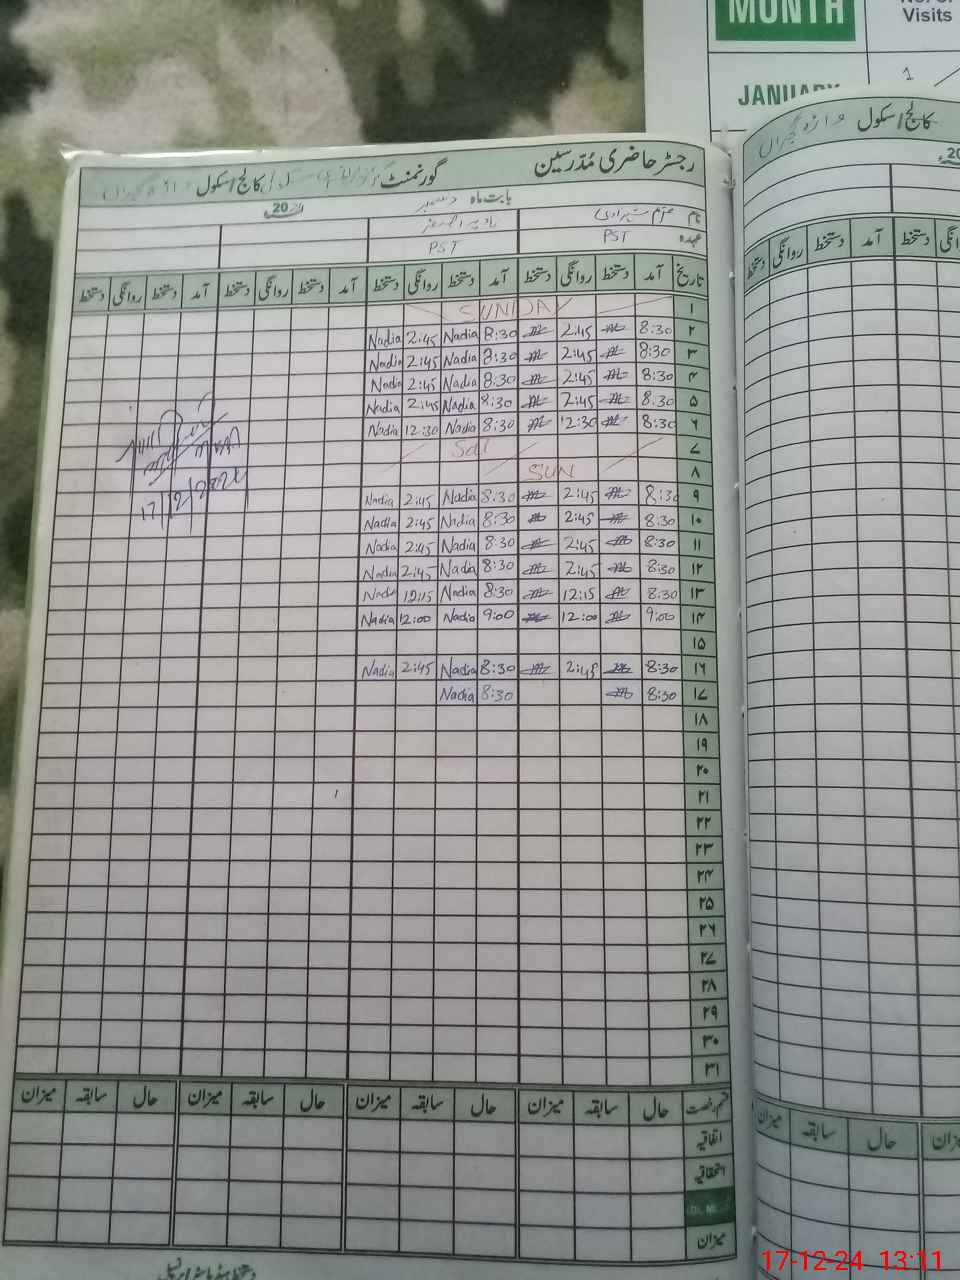 MONTH
Visits
JANUARY
1
کالج/سکول
رجسٹر حاضری مُدّرسین گورنمنٹ کالج/سکول
بابت ماہ دسمبر 20
نام
عہدہ PST PST
تاریخ آمد دستخط روانگی دستخط آمد دستخط روانگی دستخط آمد دستخط روانگی دستخط آمد دستخط روانگی دستخط
۱ SUNDAY
۲ 8:30 2:45 8:30 Nadia 2:45 Nadia
۳ 8:30 2:45 8:30 Nadia 2:45 Nadia
۴ 8:30 2:45 8:30 Nadia 2:45 Nadia
۵ 8:30 2:45 8:30 Nadia 2:45 Nadia
۶ 8:30 12:30 8:30 Nadia 12:30 Nadia
۷ Sat
۸ SUN
۹ 8:30 2:45 8:30 Nadia 2:45 Nadia
۱۰ 8:30 2:45 8:30 Nadia 2:45 Nadia
۱۱ 8:30 2:45 8:30 Nadia 2:45 Nadia
۱۲ 8:30 2:45 8:30 Nadia 2:45 Nadia
۱۳ 8:30 12:15 8:30 Nadia 12:15 Nadia
۱۴ 9:00 12:00 9:00 Nadia 12:00 Nadia
۱۵
۱۶ 8:30 2:45 8:30 Nadia 2:45 Nadia
۱۷ 8:30 8:30 Nadia
۱۸
۱۹
۲۰
۲۱
۲۲
۲۳
۲۴
۲۵
۲۶
۲۷
۲۸
۲۹
۳۰
۳۱
17/12/2024
قسم رخصت حال سابقہ میزان حال سابقہ میزان حال سابقہ میزان حال سابقہ میزان
اتفاقیہ
استحقاقیہ
میزان
آمد دستخط روانگی دستخط
حال سابقہ میزان
17-12-24 13:11